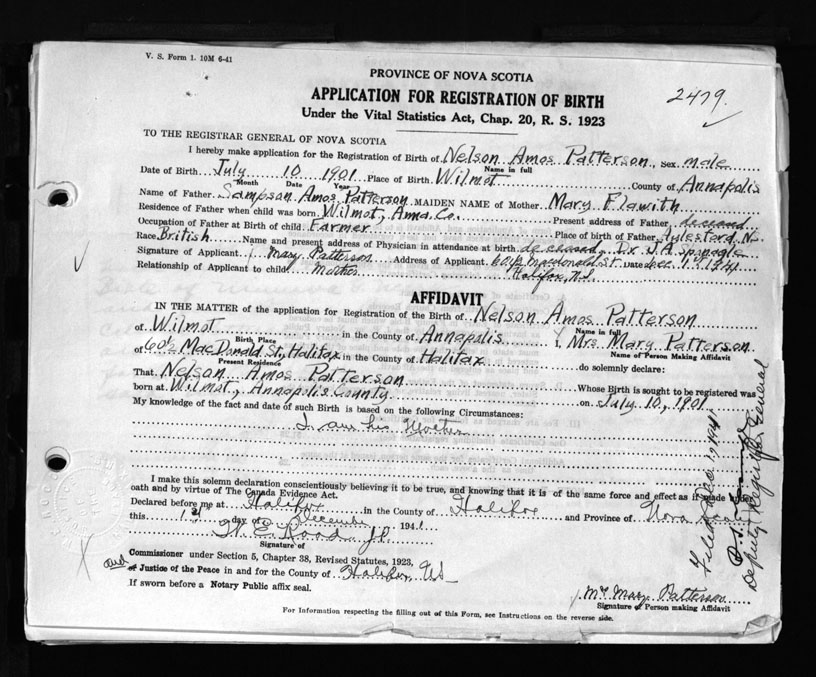 V. S. Form 1. 10M 6-41
PROVINCE OF NOVA SCOTIA
APPLICATION FOR REGISTRATION OF BIRTH
2479.
Under the Vital Statistics Act, Chap. 20, R. S. 1923
TO THE REGISTRAR GENERAL OF NOVA SCOTIA
I hereby make application for the Registration of Birth of Nelson Amos Patterson, Sex male
Name in full
Date of Birth July 10 1901 Place of Birth Wilmot County of Annapolis
Month Date Year
Name of Father Sampson Amos Patterson MAIDEN NAME of Mother Mary Flawith
Residence of Father when child was born Wilmot, Anna. Co. Present address of Father deceased
Occupation of Father at Birth of child Farmer Place of birth of Father Aylesford N.S.
Race British Name and present address of Physician in attendance at birth deceased, Dr. J.A.
Signature of Applicant Mary Patterson Address of Applicant 60½ Macdonald St. Date Dec 1st 1941
Relationship of Applicant to child Mother Halifax, N.S.
AFFIDAVIT
IN THE MATTER of the application for Registration of the Birth of Nelson Amos Patterson
Name in full
of Wilmot in the County of Annapolis I, Mrs. Mary Patterson
Birth Place Name of Person Making Affidavit
of 60½ MacDonald St, Halifax in the County of Halifax do solemnly declare:
Present Residence
That Nelson Amos Patterson Whose Birth is sought to be registered was
born at Wilmot, Annapolis County on July 10, 1901
My knowledge of the fact and date of such Birth is based on the following Circumstances:
I am his Mother
I make this solemn declaration conscientiously believing it to be true, and knowing that it is of the same force and effect as if made upon
oath and by virtue of The Canada Evidence Act.
Declared before me at Halifax in the County of Halifax and Province of Nova Scotia
this 1st day of December 1941
W. E. JP
Signature of
Commissioner under Section 5, Chapter 38, Revised Statutes, 1923,
and or Justice of the Peace in and for the County of Halifax NS
If sworn before a Notary Public affix seal.
Mrs Mary Patterson
Signature of Person making Affidavit
For Information respecting the filling out of this Form, see Instructions on the reverse side.
Filed Dec.
Deputy Registrar General